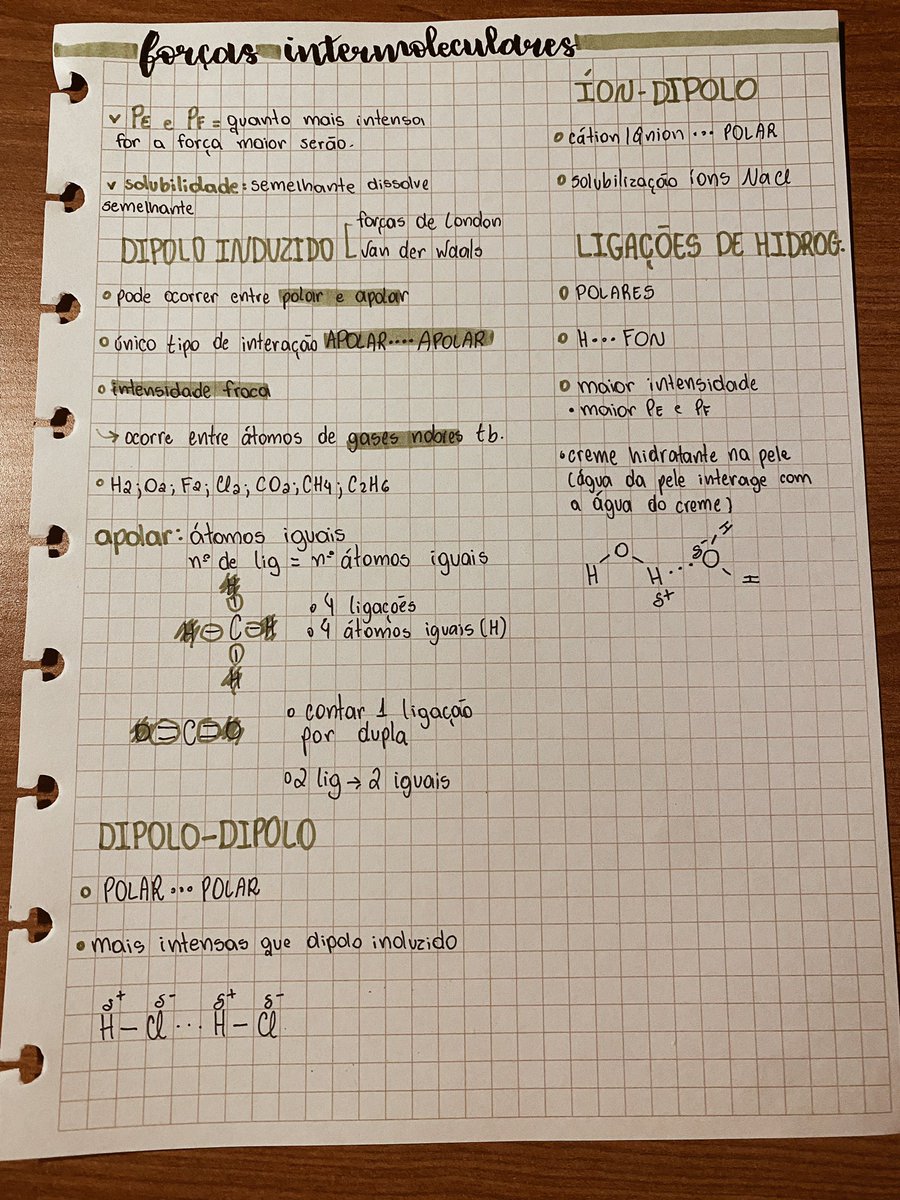 forças intermoleculares
v PE e PF = quanto mais intensa
for a força maior serão.
v solubilidade: semelhante dissolve
semelhante
DIPOLO INDUZIDO
forças de London
Van der Waals
pode ocorrer entre polar e apolar
único tipo de interação APOLAR.... APOLAR
intensidade fraca
↳ ocorre entre átomos de gases nobres tb.
H2; O2; F2; Cl2; CO2; CH4; C2H6
apolar: átomos iguais
nº de lig = nº átomos iguais
H
H - C - H
H
4 ligações
4 átomos iguais (H)
O=C=O
contar 1 ligação
por dupla
2 lig → 2 iguais
DIPOLO-DIPOLO
POLAR ... POLAR
mais intensas que dipolo induzido
δ+ δ- δ+ δ-
H - Cl ... H - Cl
ÍON-DIPOLO
cátion/ânion ... POLAR
solubilização íons NaCl
LIGAÇÕES DE HIDROG.
POLARES
H... FON
maior intensidade
• maior PE e PF
• creme hidratante na pele
(água da pele interage com
a água do creme)
H O H ... O H
δ+ δ- H